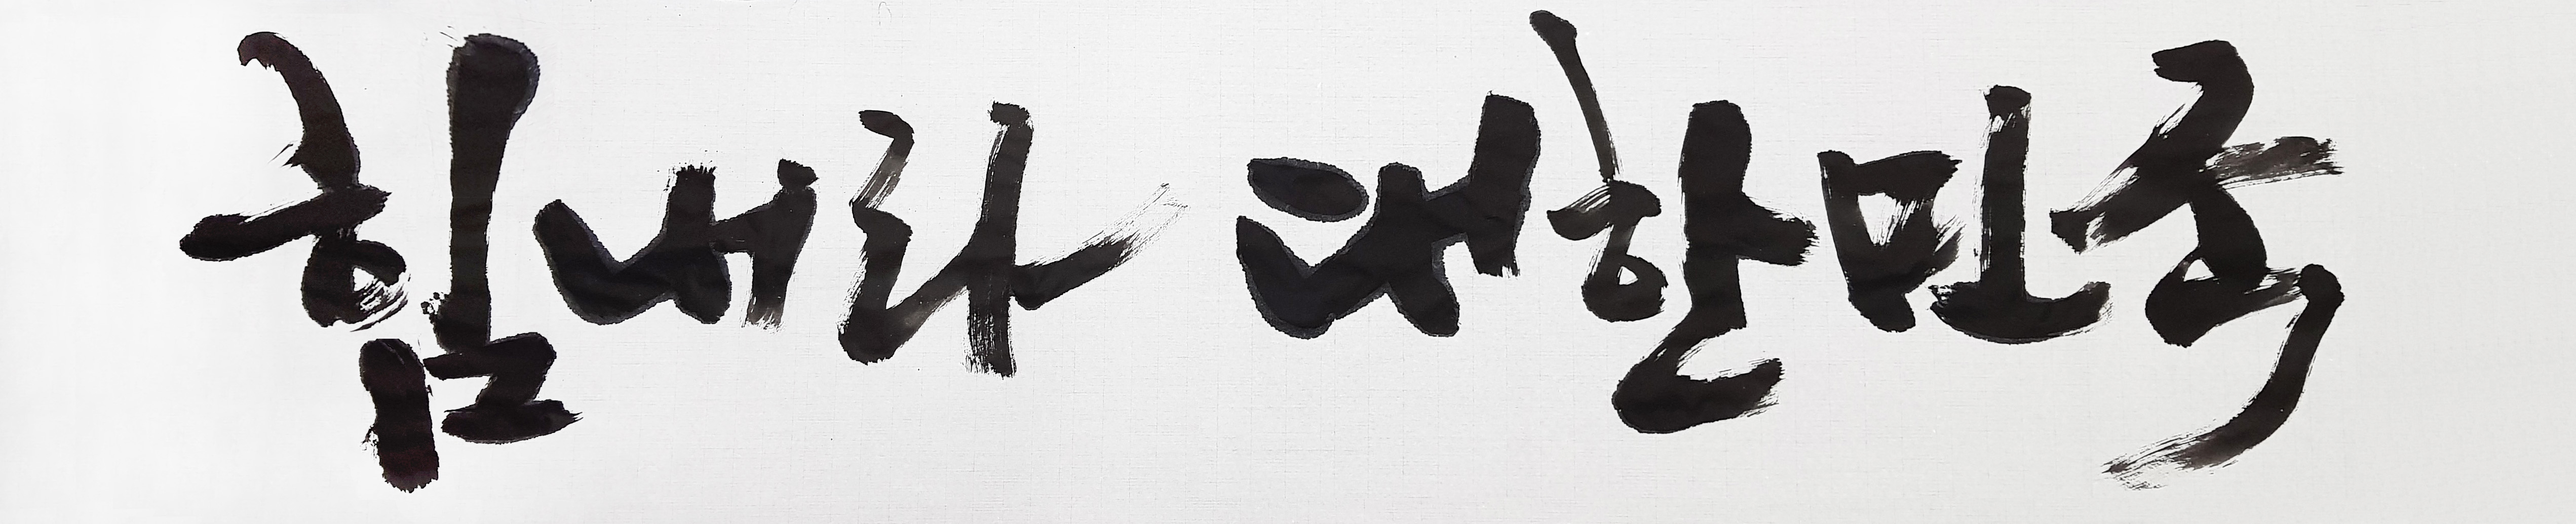 힘내라 대한민국